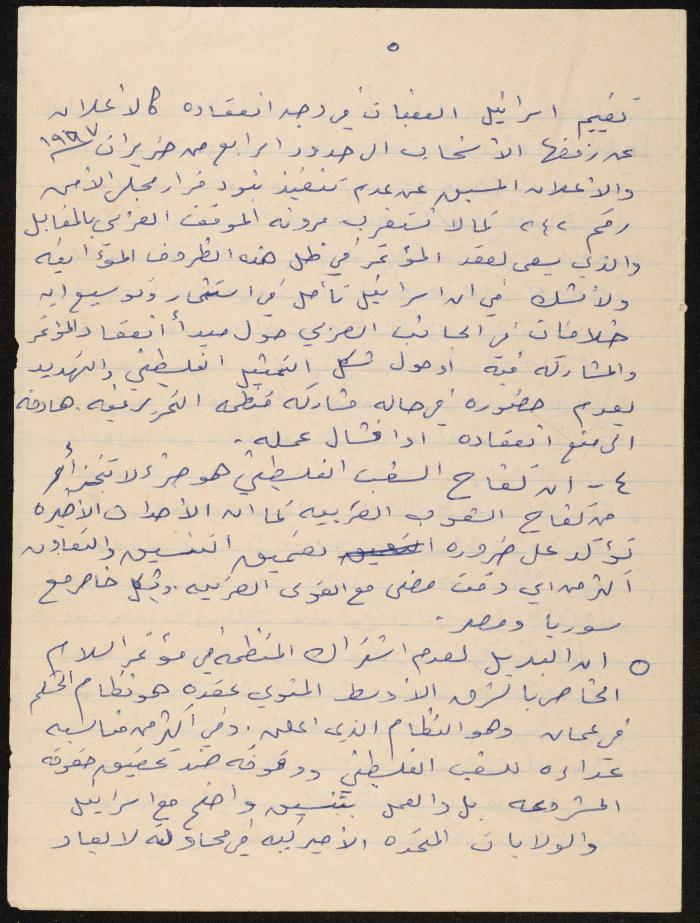 ٥
تقييم اسرائيل العقبات في وجه انعقاده كالأعلان
عن رفضها الأنسحاب الى حدود الرابع من حزيران ١٩٦٧
والأعلان المسبق عن عدم تنفيذ بنود قرار مجلس الأمن
رقم ٢٤٢ كما لا نستغرب مرونه الموقف العربي بالمقابل
والذي يسعى لعقد المؤتمر في ظل هذه الظروف المؤاتيه
ولا نشك في ان اسرائيل تأمل في استثمار وتوسيع ايه
خلافات في الجانب العربي حول مبدأ انعقاد المؤتمر
والمشاركه فيه او حول شكل التمثيل الفلسطيني والتهديد
بعدم حضوره في حاله مشاركه منظمه التحرير فيه. هادفه
الى منع انعقاده او افشال عمله -
٤ - ان كفاح الشعب الفلسطيني هو جزء لا يتجزأ
من كفاح الشعوب العربيه كما ان الأحداث الأخيره
تؤكد على ضروره التعميق تعميق التنسيق والتعاون
اكثر من اي وقت مضى مع القوى العربيه. وبشكل خاص مع
سوريا ومصر -
٥ ان البديل لعدم اشتراك المنظمه في مؤتمر السلام
الخاص بالشرق الأوسط المنوي عقده هو نظام الحكم
في عمان وهو النظام الذي اعلن. وفي اكثر من مناسبه
عداءه للشعب الفلسطيني ووقوفه ضد تحقيق حقوقه
المشروعه بل والعمل بتنسيق واضح مع اسرائيل
والولايات المتحده الأميركيه في محاولته لابعاد